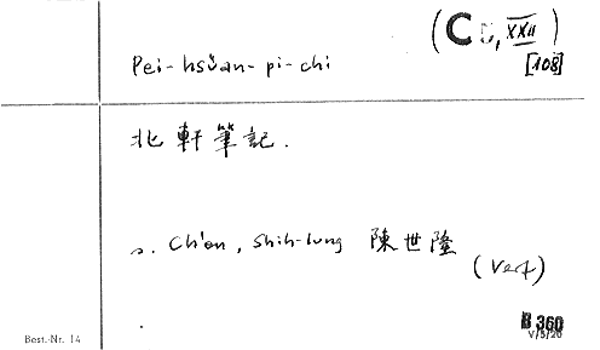 (C 5, XXII)
[108]
Pei-hsüan-pi-chi
北軒筆記.
s. Ch'en, Shih-lung 陳世隆
(Verf)
B 360
V/5/20
Best.-Nr. 14